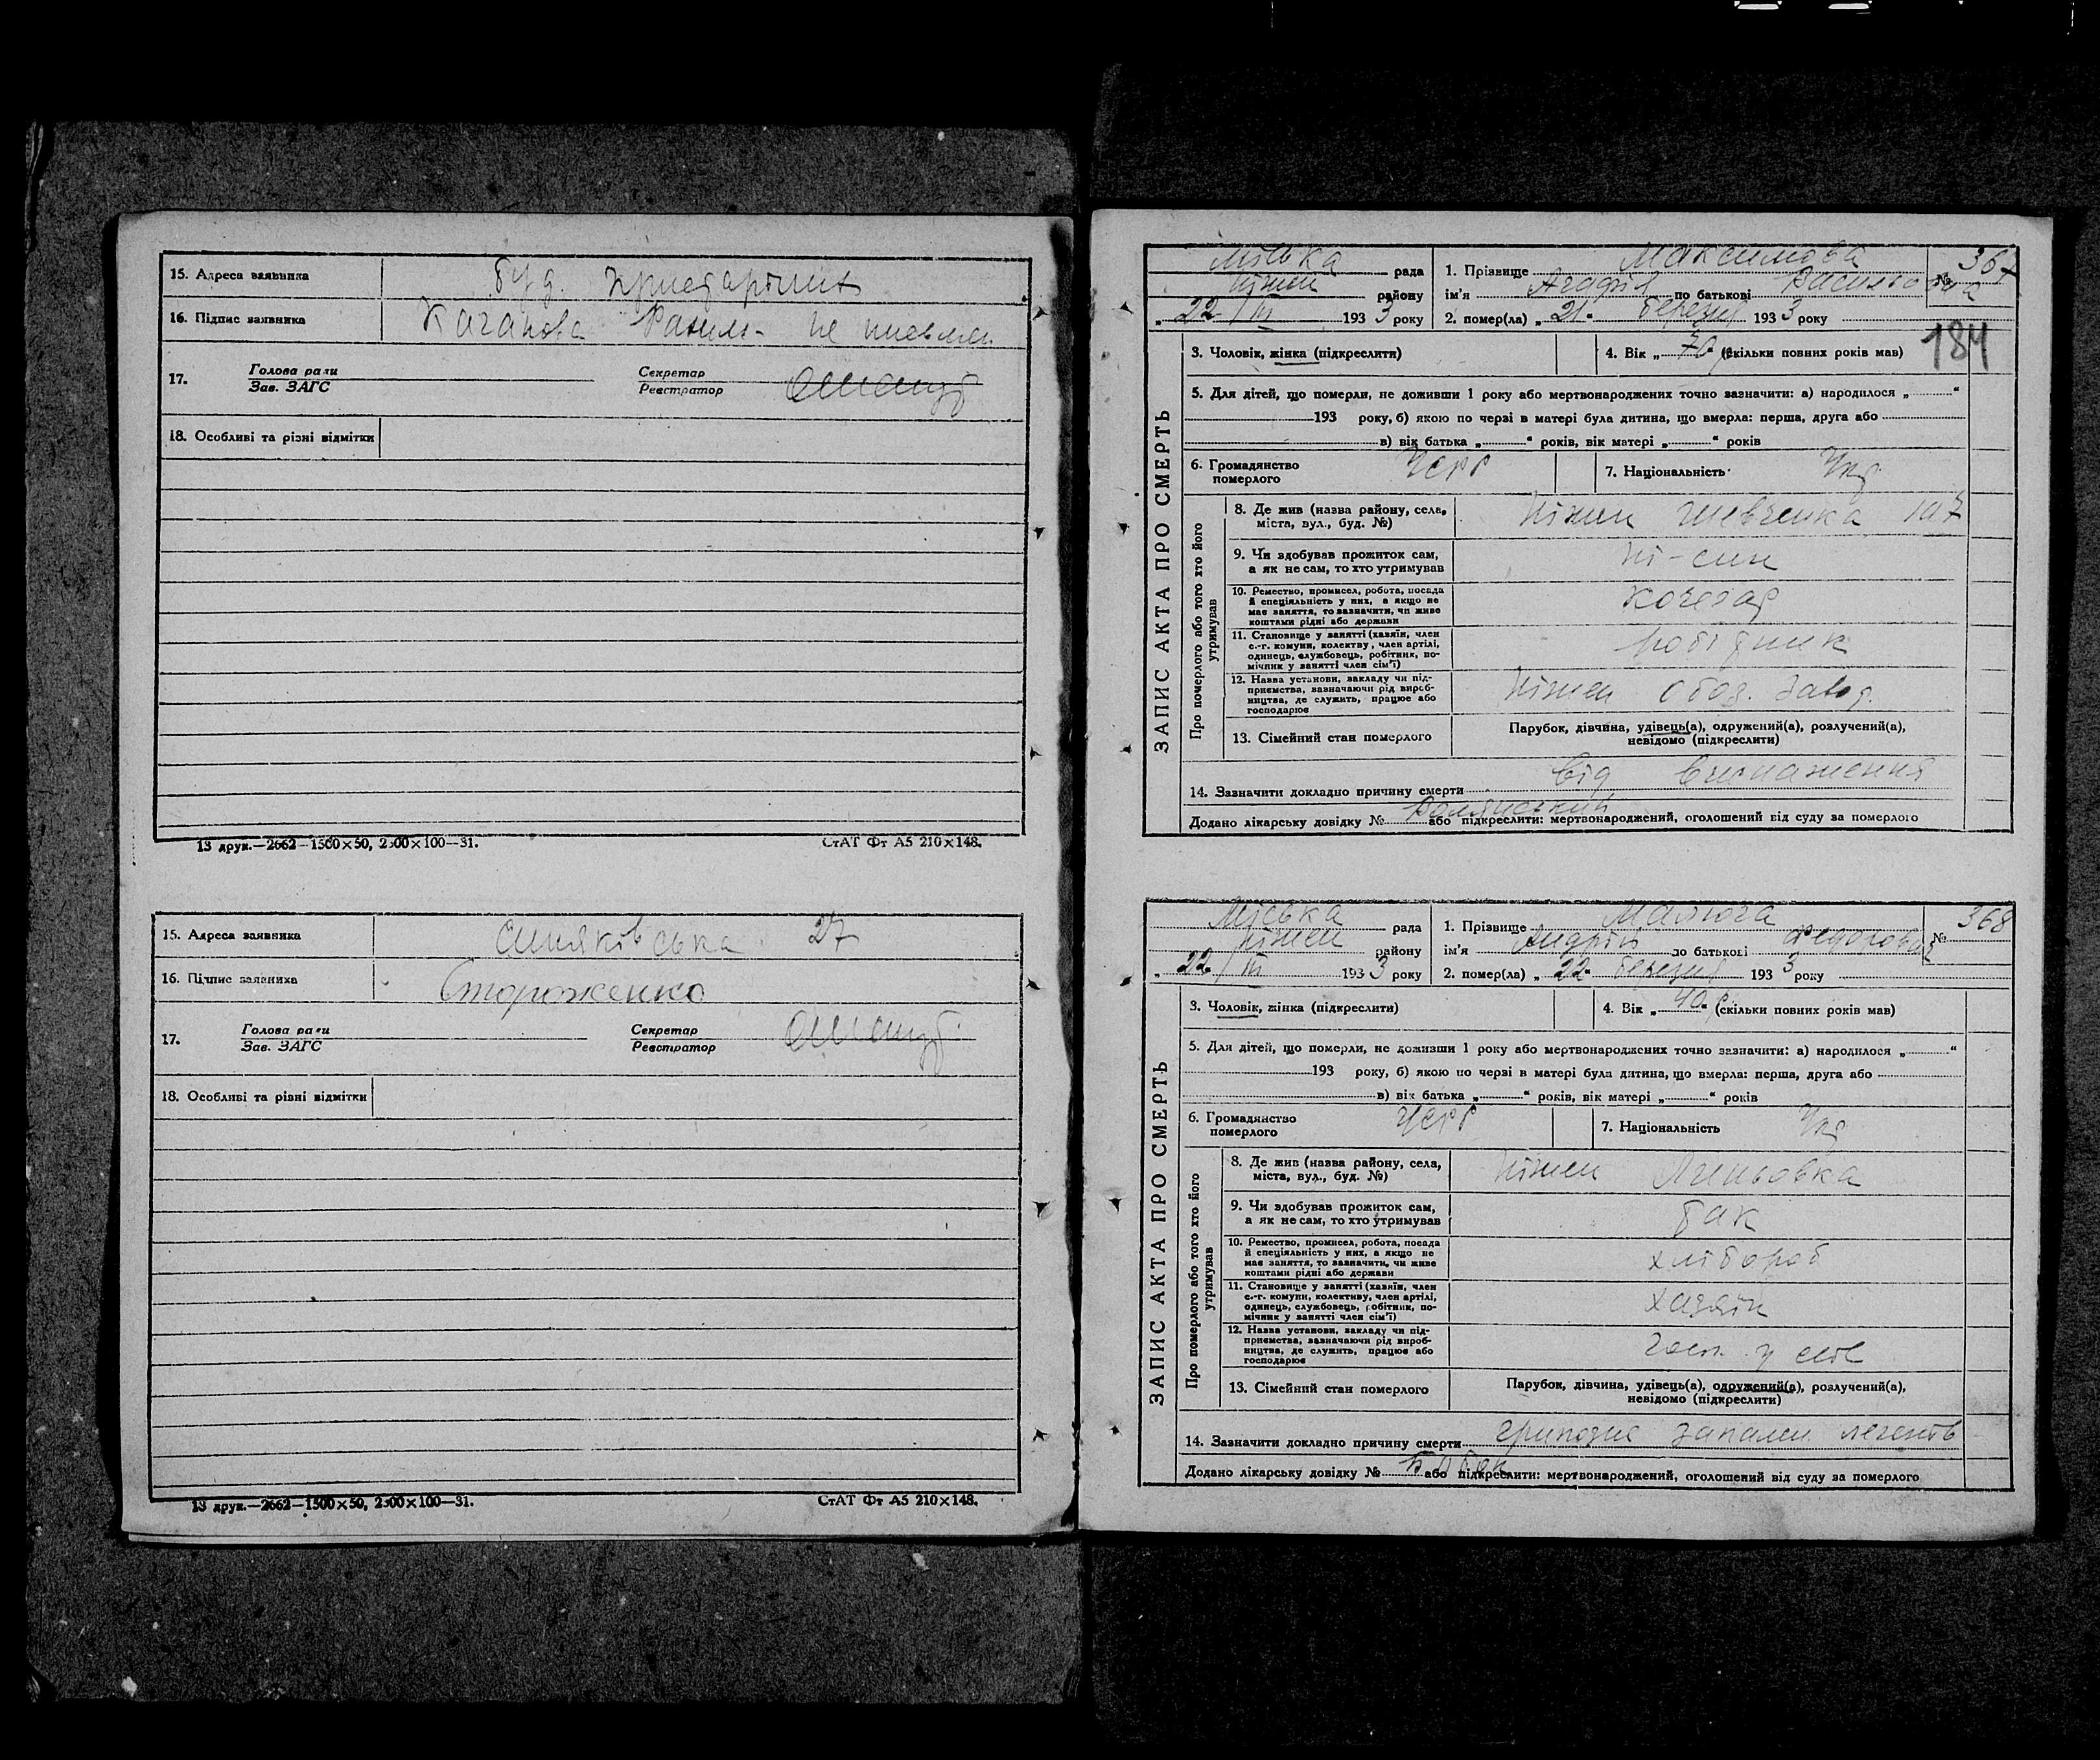 15. Адреса заявника буд.
16. Підпис заявника Качанова не письмен.
17. Голова ради Секретар
Зав. ЗАГС Реєстратор
18. Особливі та різні відмітки
13 друк.—2662—1500×50, 2500×100—31. СтАТ Фт А5 210×148.
15. Адреса заявника Синяківська 27
16. Підпис заявника Стороженко
17. Голова ради Секретар
Зав. ЗАГС Реєстратор
18. Особливі та різні відмітки
13 друк.—2662—1500×50, 2500×100—31. СтАТ Фт А5 210×148.
ЗАПИС АКТА ПРО СМЕРТЬ
Міська рада
Ніжен району
„ 22/III 1933 року
1. Прізвище Максимова
ім'я Агафія по батькові Васильовна
2. помер(ла) „ 21 березня 1933 року
№ 367
184
3. Чоловік, жінка (підкреслити)
4. Вік „ 70 “ (скільки повних років мав)
5. Для дітей, що померли, не доживши 1 року або мертвонароджених точно зазначити: а) народилося „ “
193 року, б) якою по черзі в матері була дитина, що вмерла: перша, друга або
в) вік батька „ “ років, вік матері „ “ років
6. Громадянство
померлого УСРР
7. Національність Укр
Про померлого або того хто його
утримував
8. Де жив (назва району, села,
міста, вул., буд. №) Ніжен Шевченка 107
9. Чи здобував прожиток сам,
а як не сам, то хто утримував ні-син
10. Ремество, промисел, робота, посада
й спеціяльність у них, а якщо не
має заняття, то зазначити, чи живе
коштами рідні або держави кочегар
11. Становище у занятті (хазяїн, член
с.-г. комуни, колективу, член артілі,
одинець, службовець, робітник, по-
мічник у занятті член сім'ї) робітник
12. Назва установи, закладу чи під-
приємства, зазначаючи рід вироб-
ництва, де служить, працює або
господарює Ніжен Обоз. завод.
13. Сімейний стан померлого
Парубок, дівчина, удівець(а), одружений(а), розлучений(а),
невідомо (підкреслити)
14. Зазначити докладно причину смерти від виснаження
Додано лікарську довідку № або підкреслити: мертвонароджений, оголошений від суду за померлого
ЗАПИС АКТА ПРО СМЕРТЬ
Міська рада
Ніжен району
„ 22/III 1933 року
1. Прізвище Малюга
ім'я Андрій по батькові Федорович
2. помер(ла) „ 22 березня 1933 року
№ 368
3. Чоловік, жінка (підкреслити)
4. Вік „ 40 “ (скільки повних років мав)
5. Для дітей, що померли, не доживши 1 року або мертвонароджених точно зазначити: а) народилося „ “
193 року, б) якою по черзі в матері була дитина, що вмерла: перша, друга або
в) вік батька „ “ років, вік матері „ “ років
6. Громадянство
померлого УСРР
7. Національність Укр
Про померлого або того хто його
утримував
8. Де жив (назва району, села,
міста, вул., буд. №) Ніжен
9. Чи здобував прожиток сам,
а як не сам, то хто утримував так
10. Ремество, промисел, робота, посада
й спеціяльність у них, а якщо не
має заняття, то зазначити, чи живе
коштами рідні або держави хлібороб
11. Становище у занятті (хазяїн, член
с.-г. комуни, колективу, член артілі,
одинець, службовець, робітник, по-
мічник у занятті член сім'ї) хазяїн
12. Назва установи, закладу чи під-
приємства, зазначаючи рід вироб-
ництва, де служить, працює або
господарює госп. у себе
13. Сімейний стан померлого
Парубок, дівчина, удівець(а), одружений(а), розлучений(а),
невідомо (підкреслити)
14. Зазначити докладно причину смерти грипозне запален легенів
Додано лікарську довідку № або підкреслити: мертвонароджений, оголошений від суду за померлого